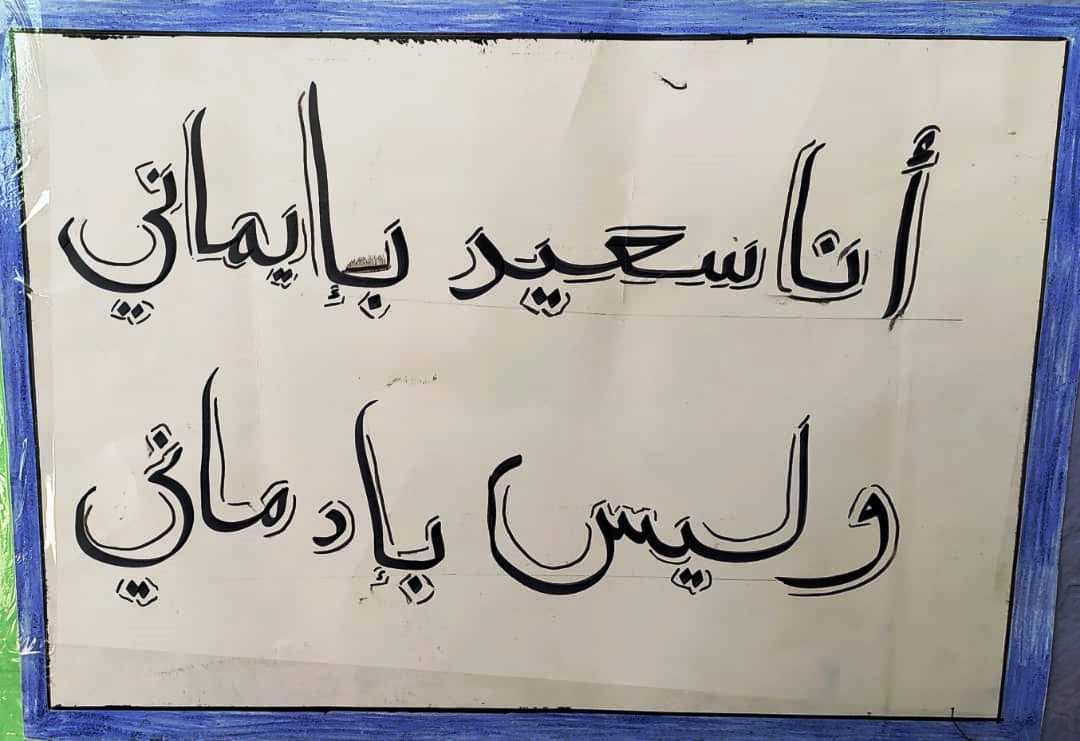 أنا سعيد بإيماني
وليس بإدماني